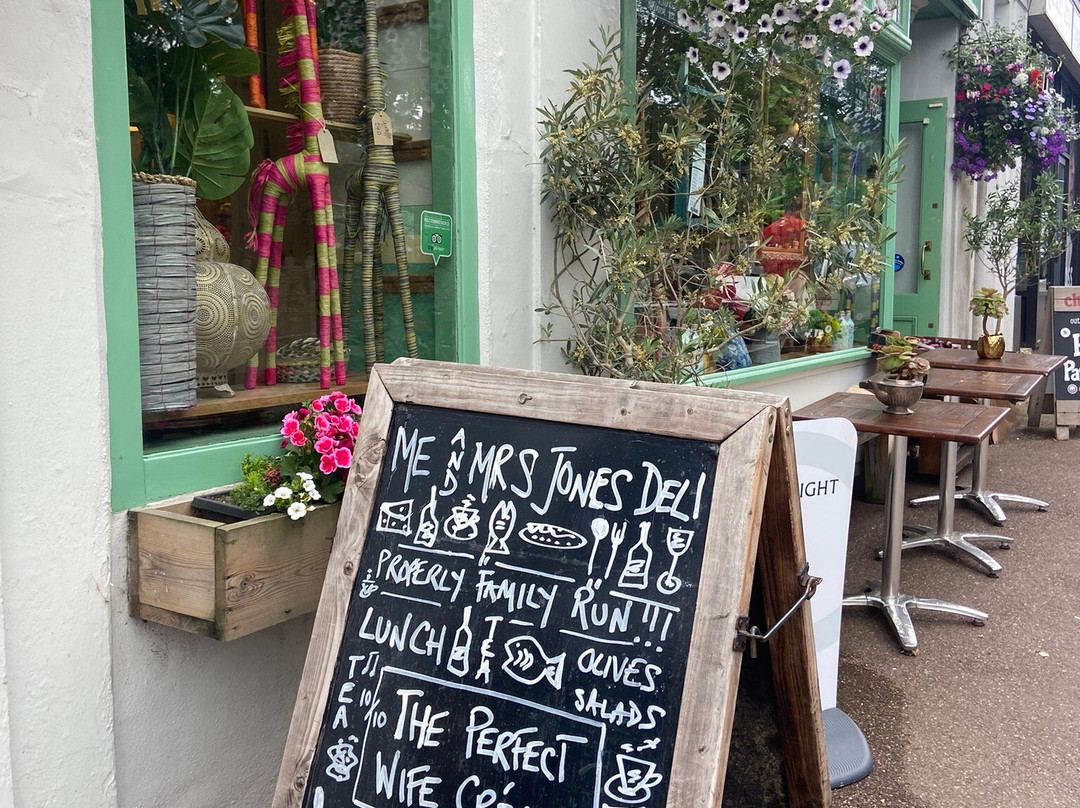 ME AND MRS JONES DELI
PROPERLY FAMILY RUN!!!
LUNCH TEA OLIVES
SALADS
TEA 10/10
THE PERFECT
WIFE CRÉ
IGHT
ch
out
Pa